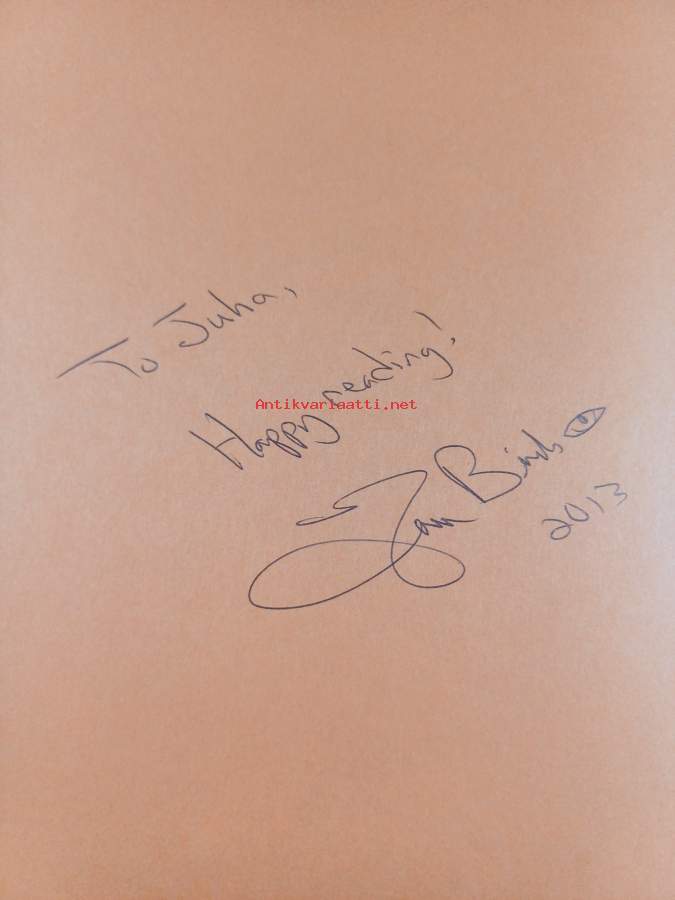 To Juha,
Happy reading!
Antikvariaatti.net
2013